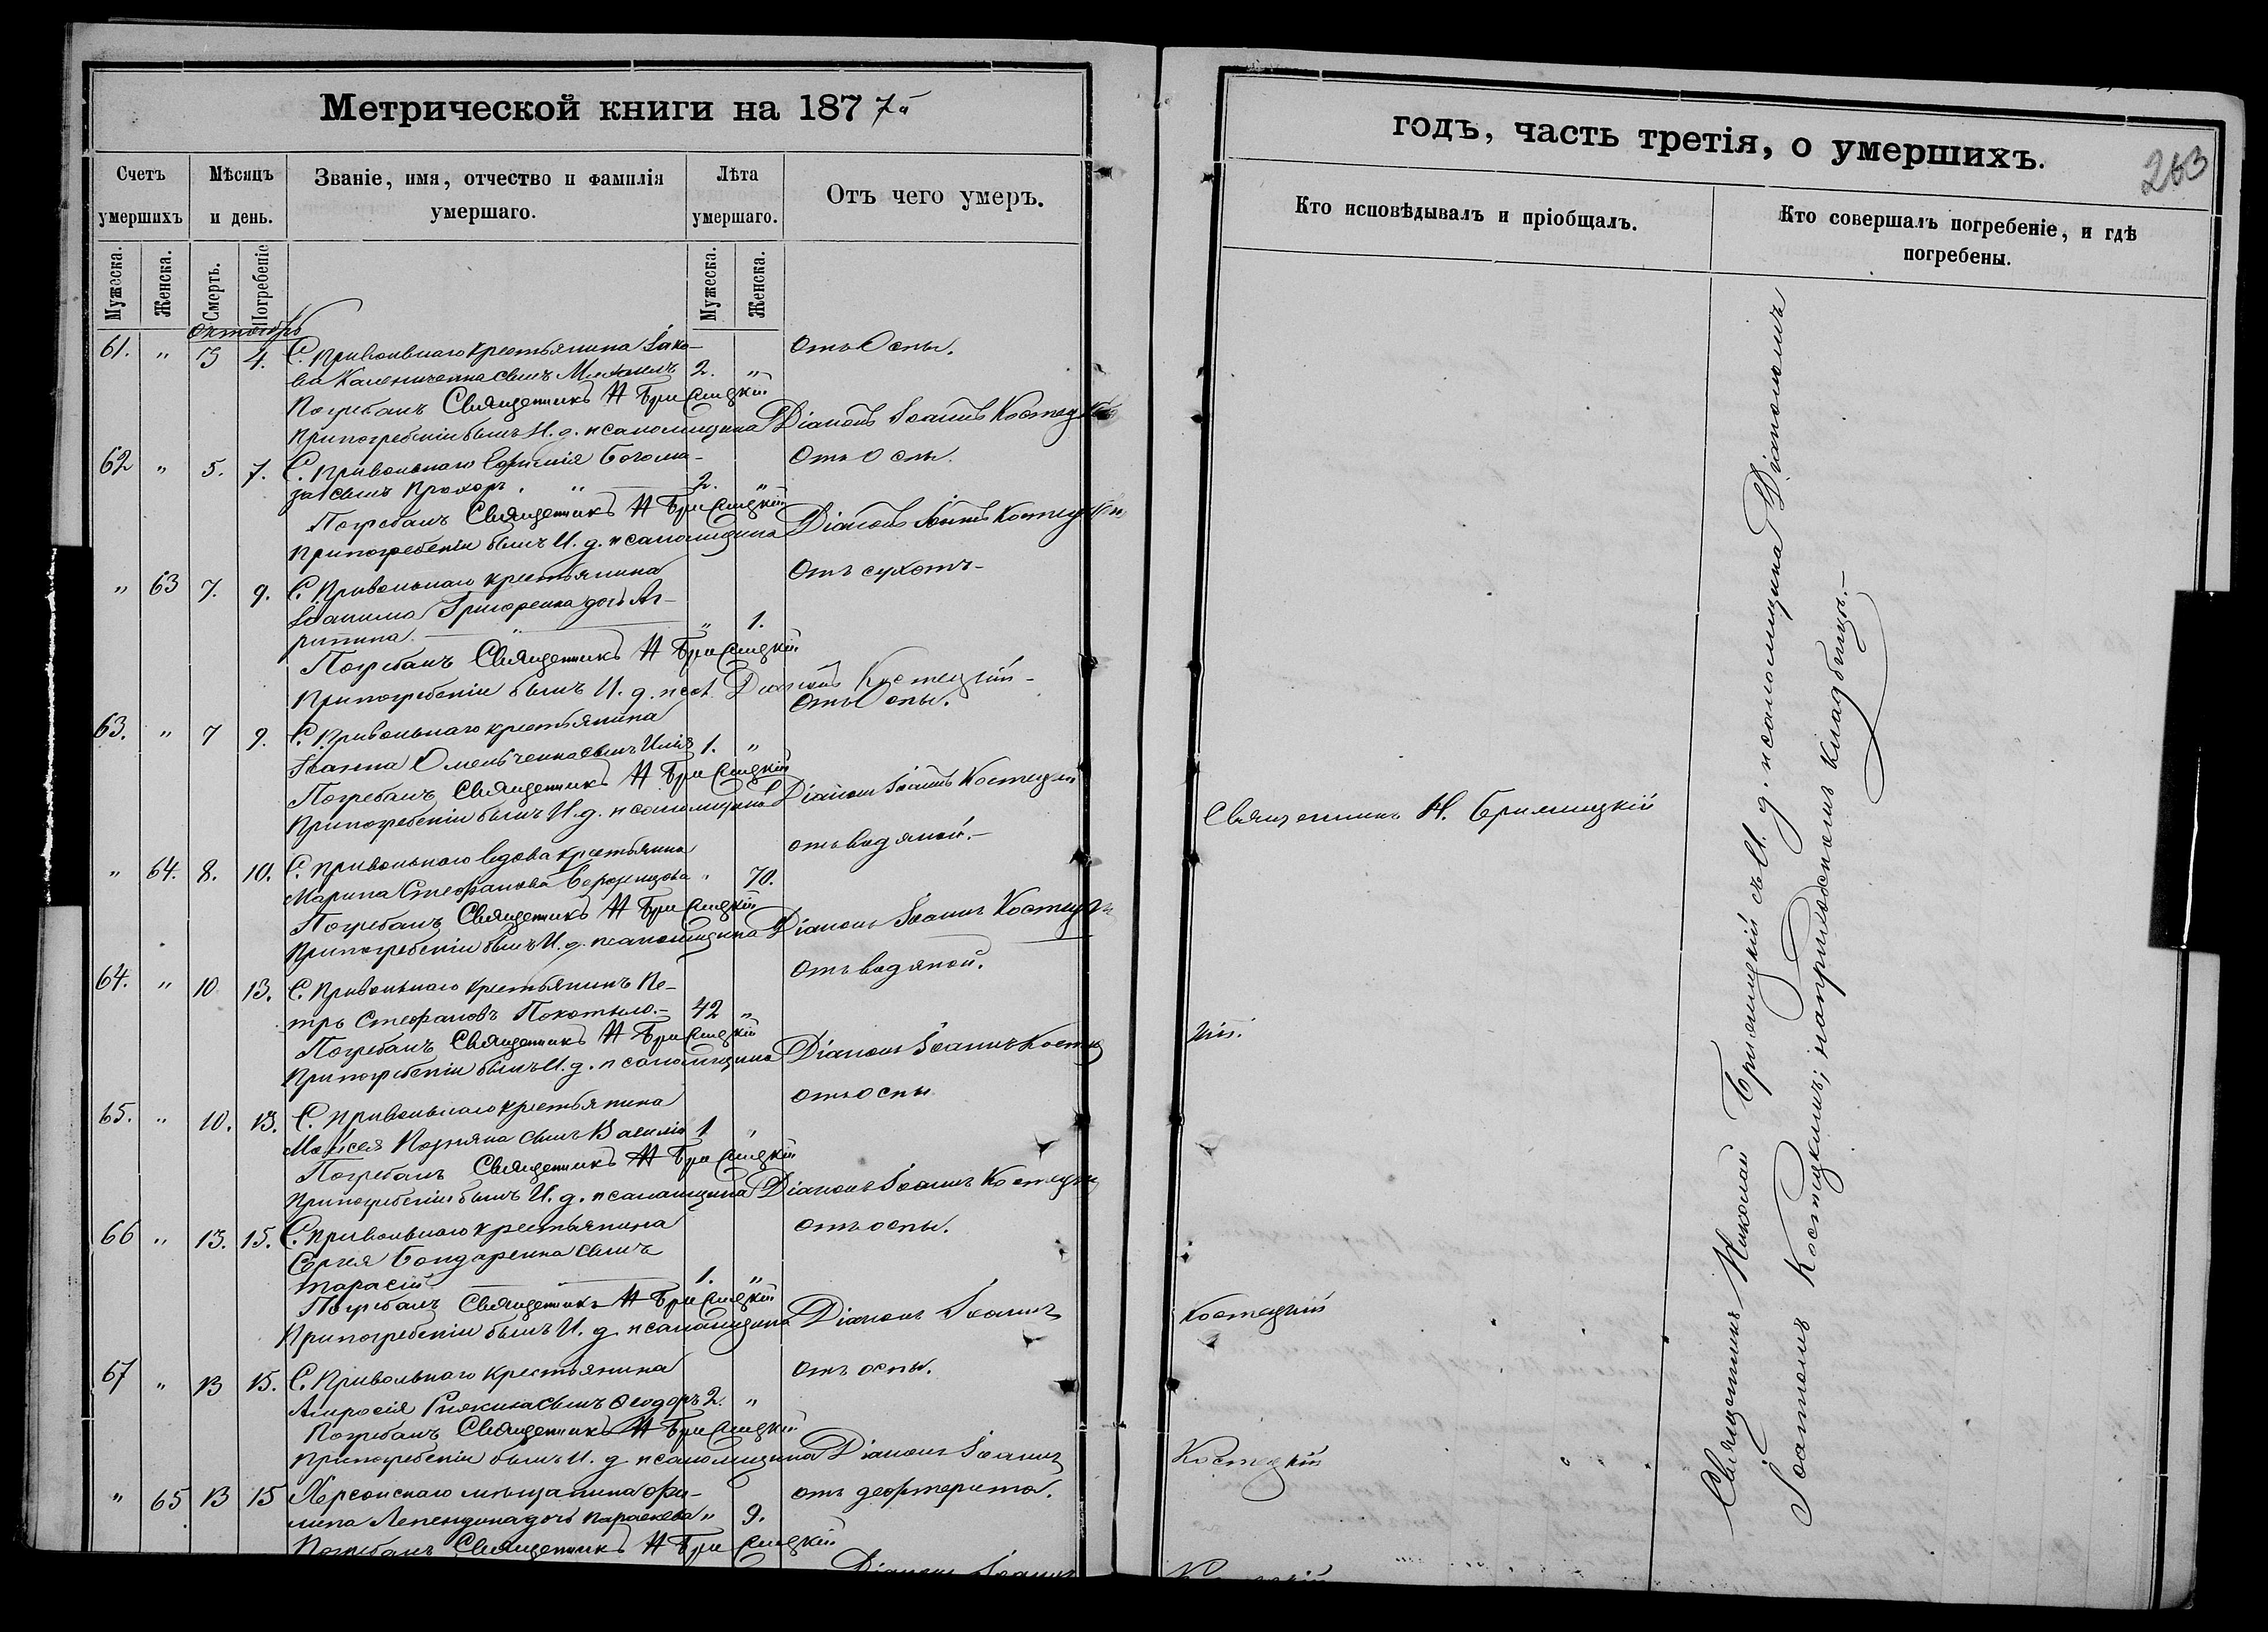 Метрической книги на 187 7й
Счетъ умершихъ
Мѣсяцъ и день.
Званіе, имя, отчество и фамилія умершаго.
Лѣта умершаго.
Отъ чего умеръ.
Мужеска.
Женска.
Смерть.
Погребеніе
Мужеска.
Женска.
Октябрь
61. " 3 4. С. Привольнаго крестьянина Іако- Отъ Оспы.
ва Калениченка сынъ Михаилъ 2. "
Погребалъ Священникъ Н Бримицкій
При погребеніи былъ И. д. псаломщика Діаконъ Іоаннъ Костецкій
62 " 5. 7. С. Привольнаго Ефимія Богома- Отъ Оспы.
за сынъ Прохоръ. " 2. "
Погребалъ Священникъ Н Бримицкій
При погребеніи былъ И. д. псаломщика Діаконъ Іоаннъ Костецкій
" 63 7. 9. С. Привольнаго крестьянина Отъ сухотъ-
Іоакима Григоренка дочь Аг-
рипина. " " 1.
Погребалъ Священникъ Н Бримицкій
При погребеніи былъ И. д. псал. Діаконъ Костецкій-
63. " 7 9. С. Привольнаго крестьянина Отъ Оспы.
Іоанна Омельченка сынъ Илія 1. "
Погребалъ Священникъ Н Бримицкій
При погребеніи былъ И. д. псаломщика Діаконъ Іоаннъ Костецкій
" 64. 8. 10. С. Привольнаго вдова крестьянка отъ водяной.-
Марина Стефанова " 70.
Погребалъ Священникъ Н Бримицкій
При погребеніи былъ И. д. псаломщика Діаконъ Іоаннъ Костецкій
64. " 10 13. С. Привольнаго крестьянинъ Пе- Отъ водяной.
тръ Стефановъ Покотыло.- 42 "
Погребалъ Священникъ Н Бримицкій
При погребеніи былъ И. д. псаломщика Діаконъ Іоаннъ Костец
65. " 10. 13. С. Привольнаго крестьянина отъ оспы
Моисея Позняка сынъ Василій 1 "
Погребалъ Священникъ Н Бримицкій
При погребеніи былъ И. д. псаломщика Діаконъ Іоаннъ Костецкій
66 " 13. 15. С. Привольнаго крестьянина отъ оспы.
Сергія Бондаренка сынъ
Тарасій 1. "
Погребалъ Священникъ Н Бримицкій
При погребеніи былъ И. д. псаломщика Діаконъ Іоаннъ
67 " 13 15. С. Привольнаго крестьянина отъ оспы.
Амвросія сынъ Ѳеодоръ 2. "
Погребалъ Священникъ Н Бримицкій
При погребеніи былъ И. д. псаломщика Діаконъ Іоаннъ
" 65 13 15 Херсонскаго мѣщанина Фи- отъ дефтерита.
липа дочь Параскева " 9.
Погребалъ Священникъ Н Бримицкій
Діаконъ Іоаннъ
годъ, часть третія, о умершихъ.
263
Кто исповѣдывалъ и пріобщалъ.
Кто совершалъ погребеніе, и гдѣ погребены.
Священникъ Н. Бримицкій
кій.
Костецкій
Костецкій
Священникъ Николай Бримицкій съ И. д. псаломщика Діакономъ
Іоанномъ Костецкимъ; на приходскомъ кладбищѣ.-